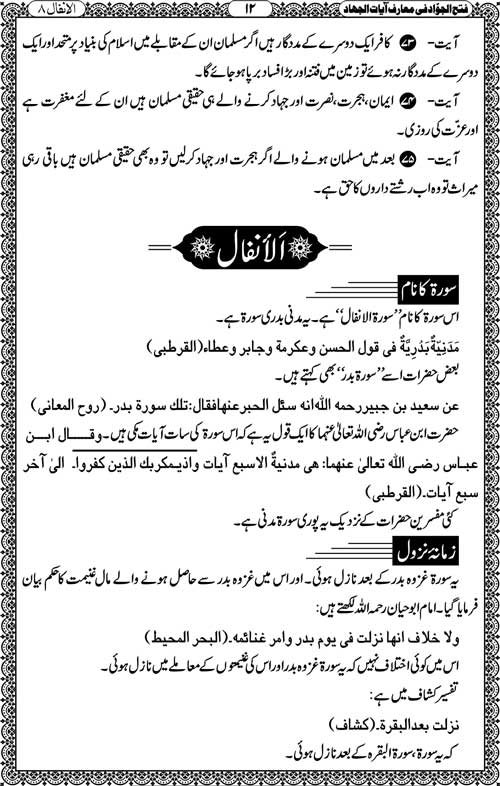 فتح الجوّاد فی معارف آیات الجهاد
۱۲
الانفال ۸
آیت- ۷۳ کافر ایک دوسرے کے مددگار ہیں اگر مسلمان ان کے مقابلے میں اسلام کی بنیاد پر متحد اور ایک
دوسرے کے مددگار نہ ہوئے تو زمین میں فتنہ اور بڑا فساد برپا ہو جائے گا۔
آیت- ۷۴ ایمان، ہجرت، نصرت اور جہاد کرنے والے ہی حقیقی مسلمان ہیں ان کے لئے مغفرت ہے
اور عزّت کی روزی۔
آیت- ۷۵ بعد میں مسلمان ہونے والے اگر ہجرت اور جہاد کرلیں تو وہ بھی حقیقی مسلمان ہیں باقی رہی
میراث تو وہ اب رشتے داروں کا حق ہے۔
اَلأنفال
سورۃ کا نام
اس سورۃ کا نام ’’سورۃ الانفال‘‘ ہے۔ یہ مدنی بدری سورۃ ہے۔
مَدَنِیَّةٌ بَدْرِیَّةٌ فی قول الحسن وعکرمة وجابر وعطاء (القرطبی)
بعض حضرات اسے ’’سورۃ بدر‘‘ بھی کہتے ہیں۔
عن سعید بن جبیر رحمه اللّٰه انه سئل الحبر عنها فقال: تلك سورة بدر۔ (روح المعانی)
حضرت ابن عباس رضی اللہ تعالیٰ عنہما کا ایک قول یہ ہے کہ اس سورۃ کی سات آیات مکی ہیں۔ وقال ابن
عباس رضی اللّٰه تعالیٰ عنهما: هی مدنیةٌ الاسبع آیات واذیمکربك الذین کفروا۔ الیٰ آخر
سبع آیات۔ (القرطبی)
کئی مفسرین حضرات کے نزدیک یہ پوری سورۃ مدنی ہے۔
زمانۂ نزول
یہ سورۃ غزوہ بدر کے بعد نازل ہوئی۔ اور اس میں غزوہ بدر سے حاصل ہونے والے مال غنیمت کا حکم بیان
فرمایا گیا۔ امام ابوحیان رحمہ اللہ لکھتے ہیں:
ولا خلاف انها نزلت فی یوم بدر وامر غنائمه۔ (البحر المحیط)
اس میں کوئی اختلاف نہیں کہ یہ سورۃ غزوہ بدر اور اس کی غنیمتوں کے معاملے میں نازل ہوئی۔
تفسیر کشاف میں ہے:
نزلت بعدالبقرة۔ (کشاف)
کہ یہ سورۃ، سورۃ البقرہ کے بعد نازل ہوئی۔